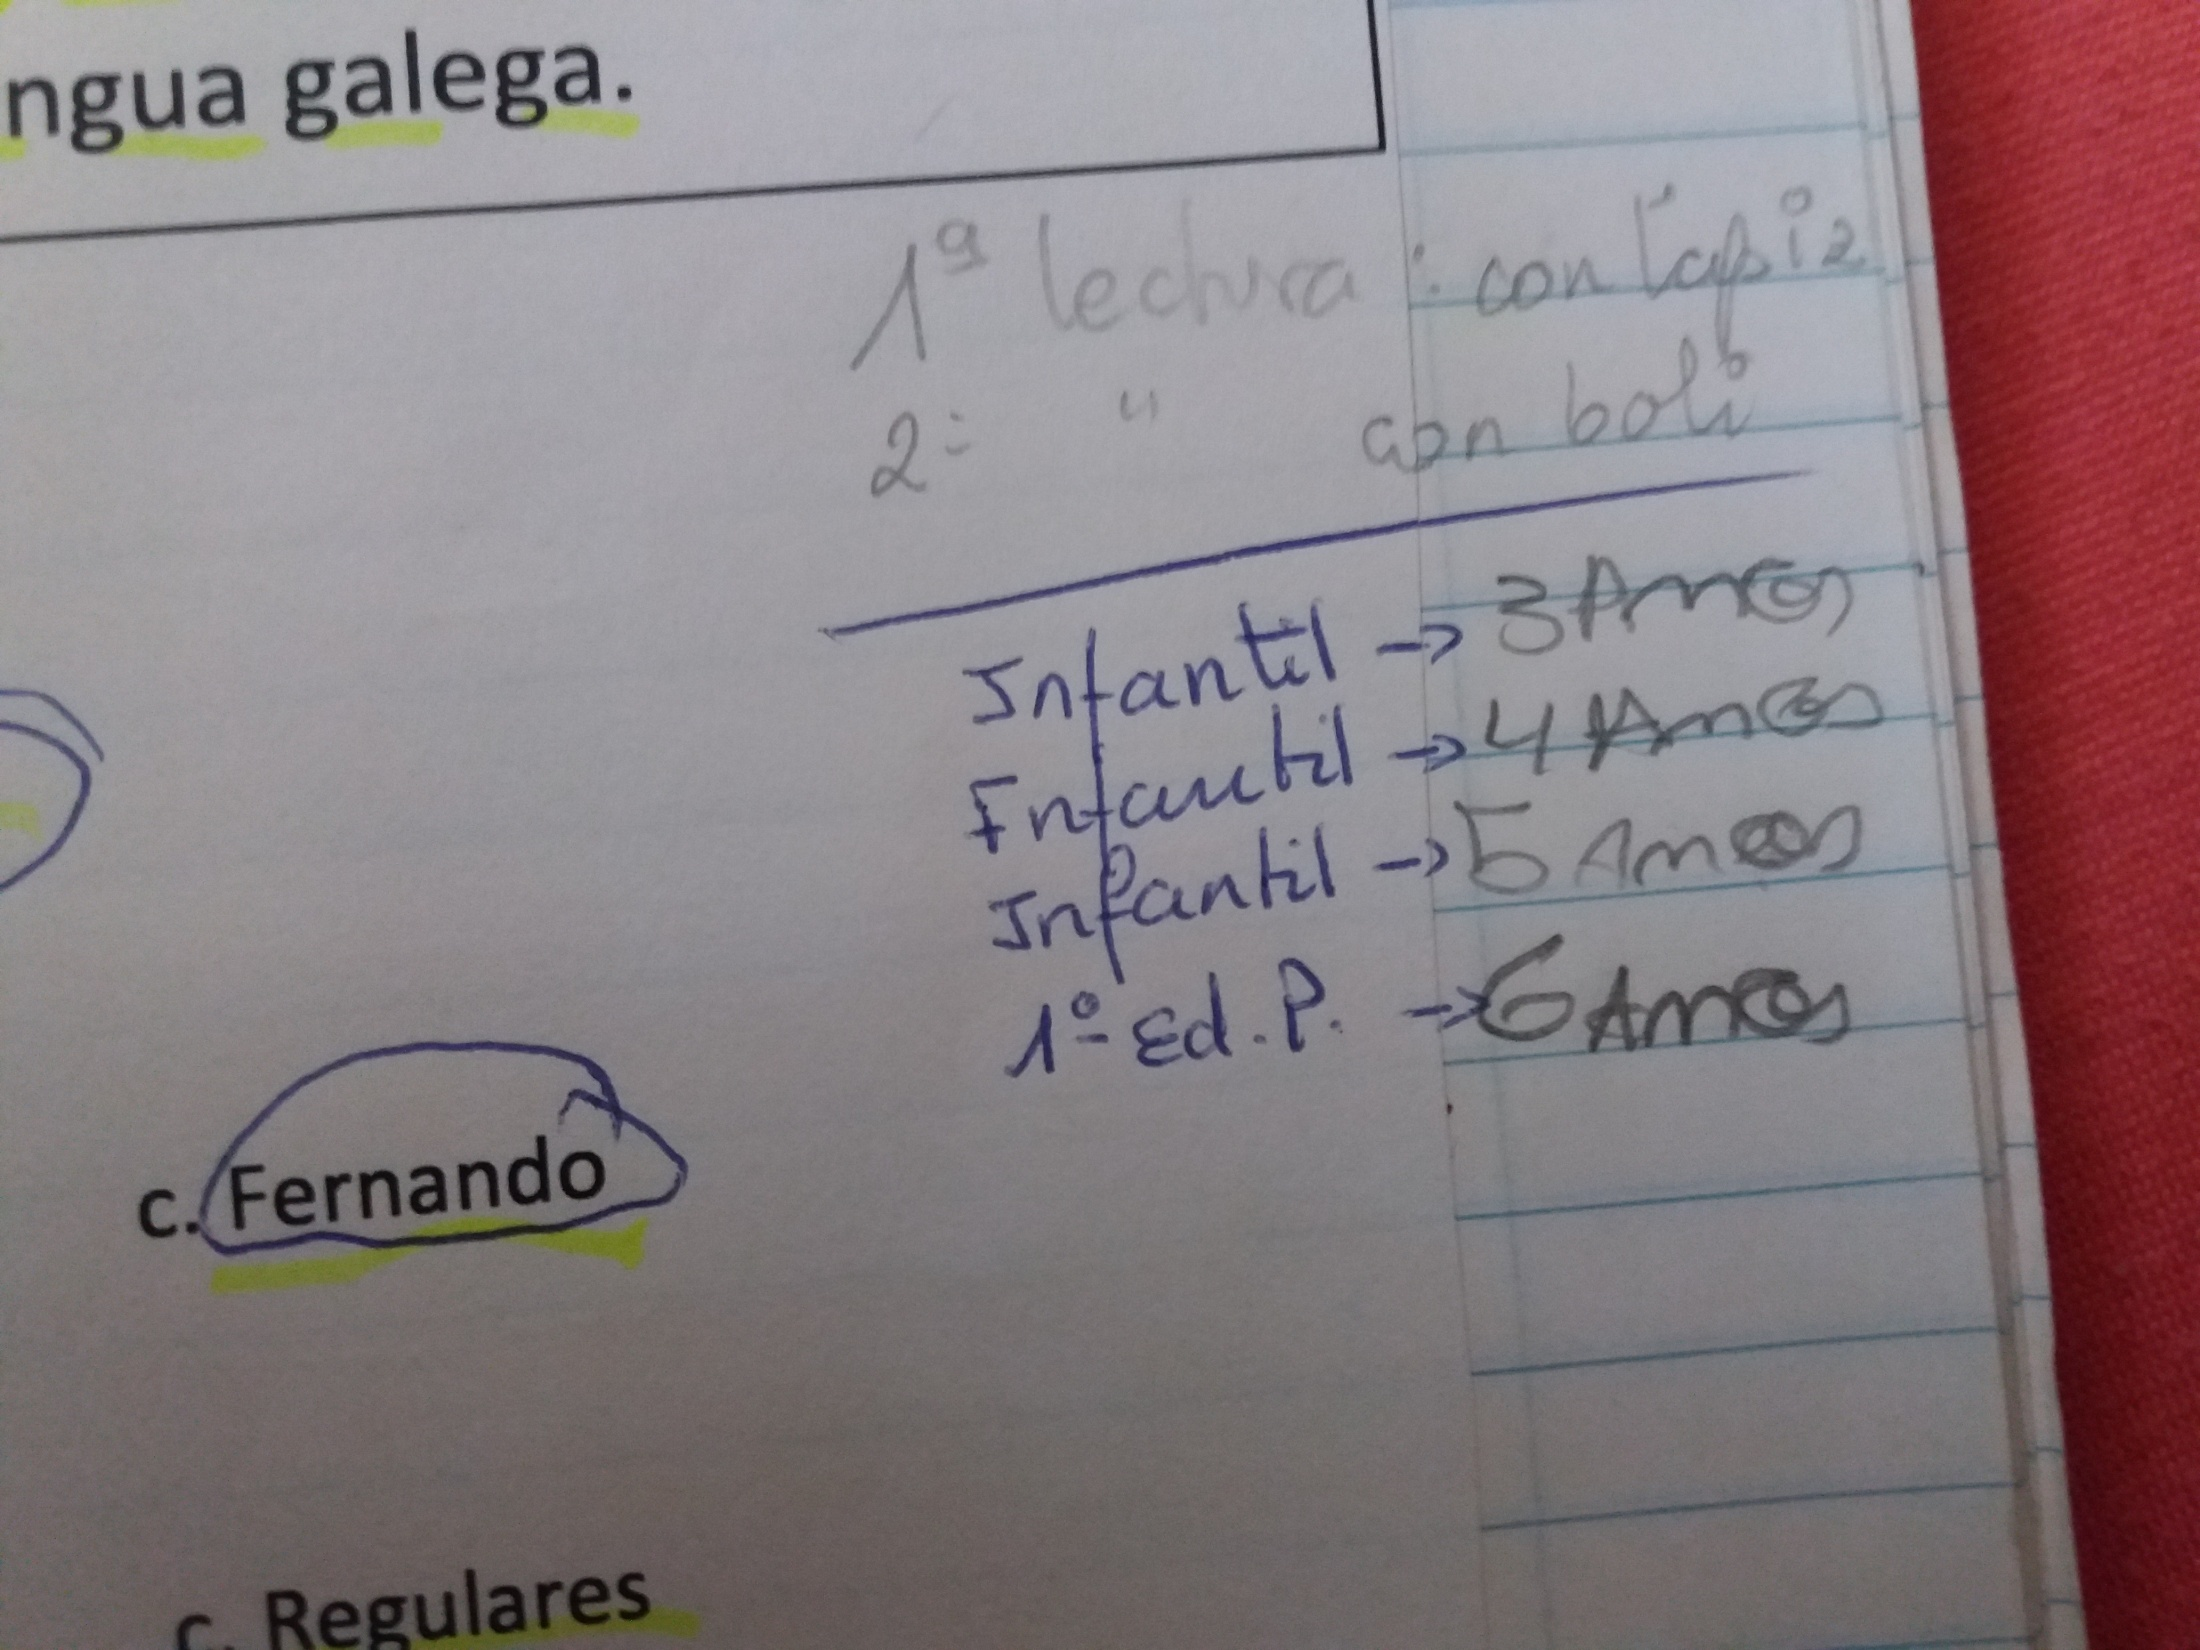 ngua galega.
1ª lectura: con lapiz
2ª " con boli
Infantil -> 3 Anos
Infantil -> 4 Anos
Infantil -> 5 Anos
1º Ed. P. -> 6 Anos
c. Fernando
c. Regulares